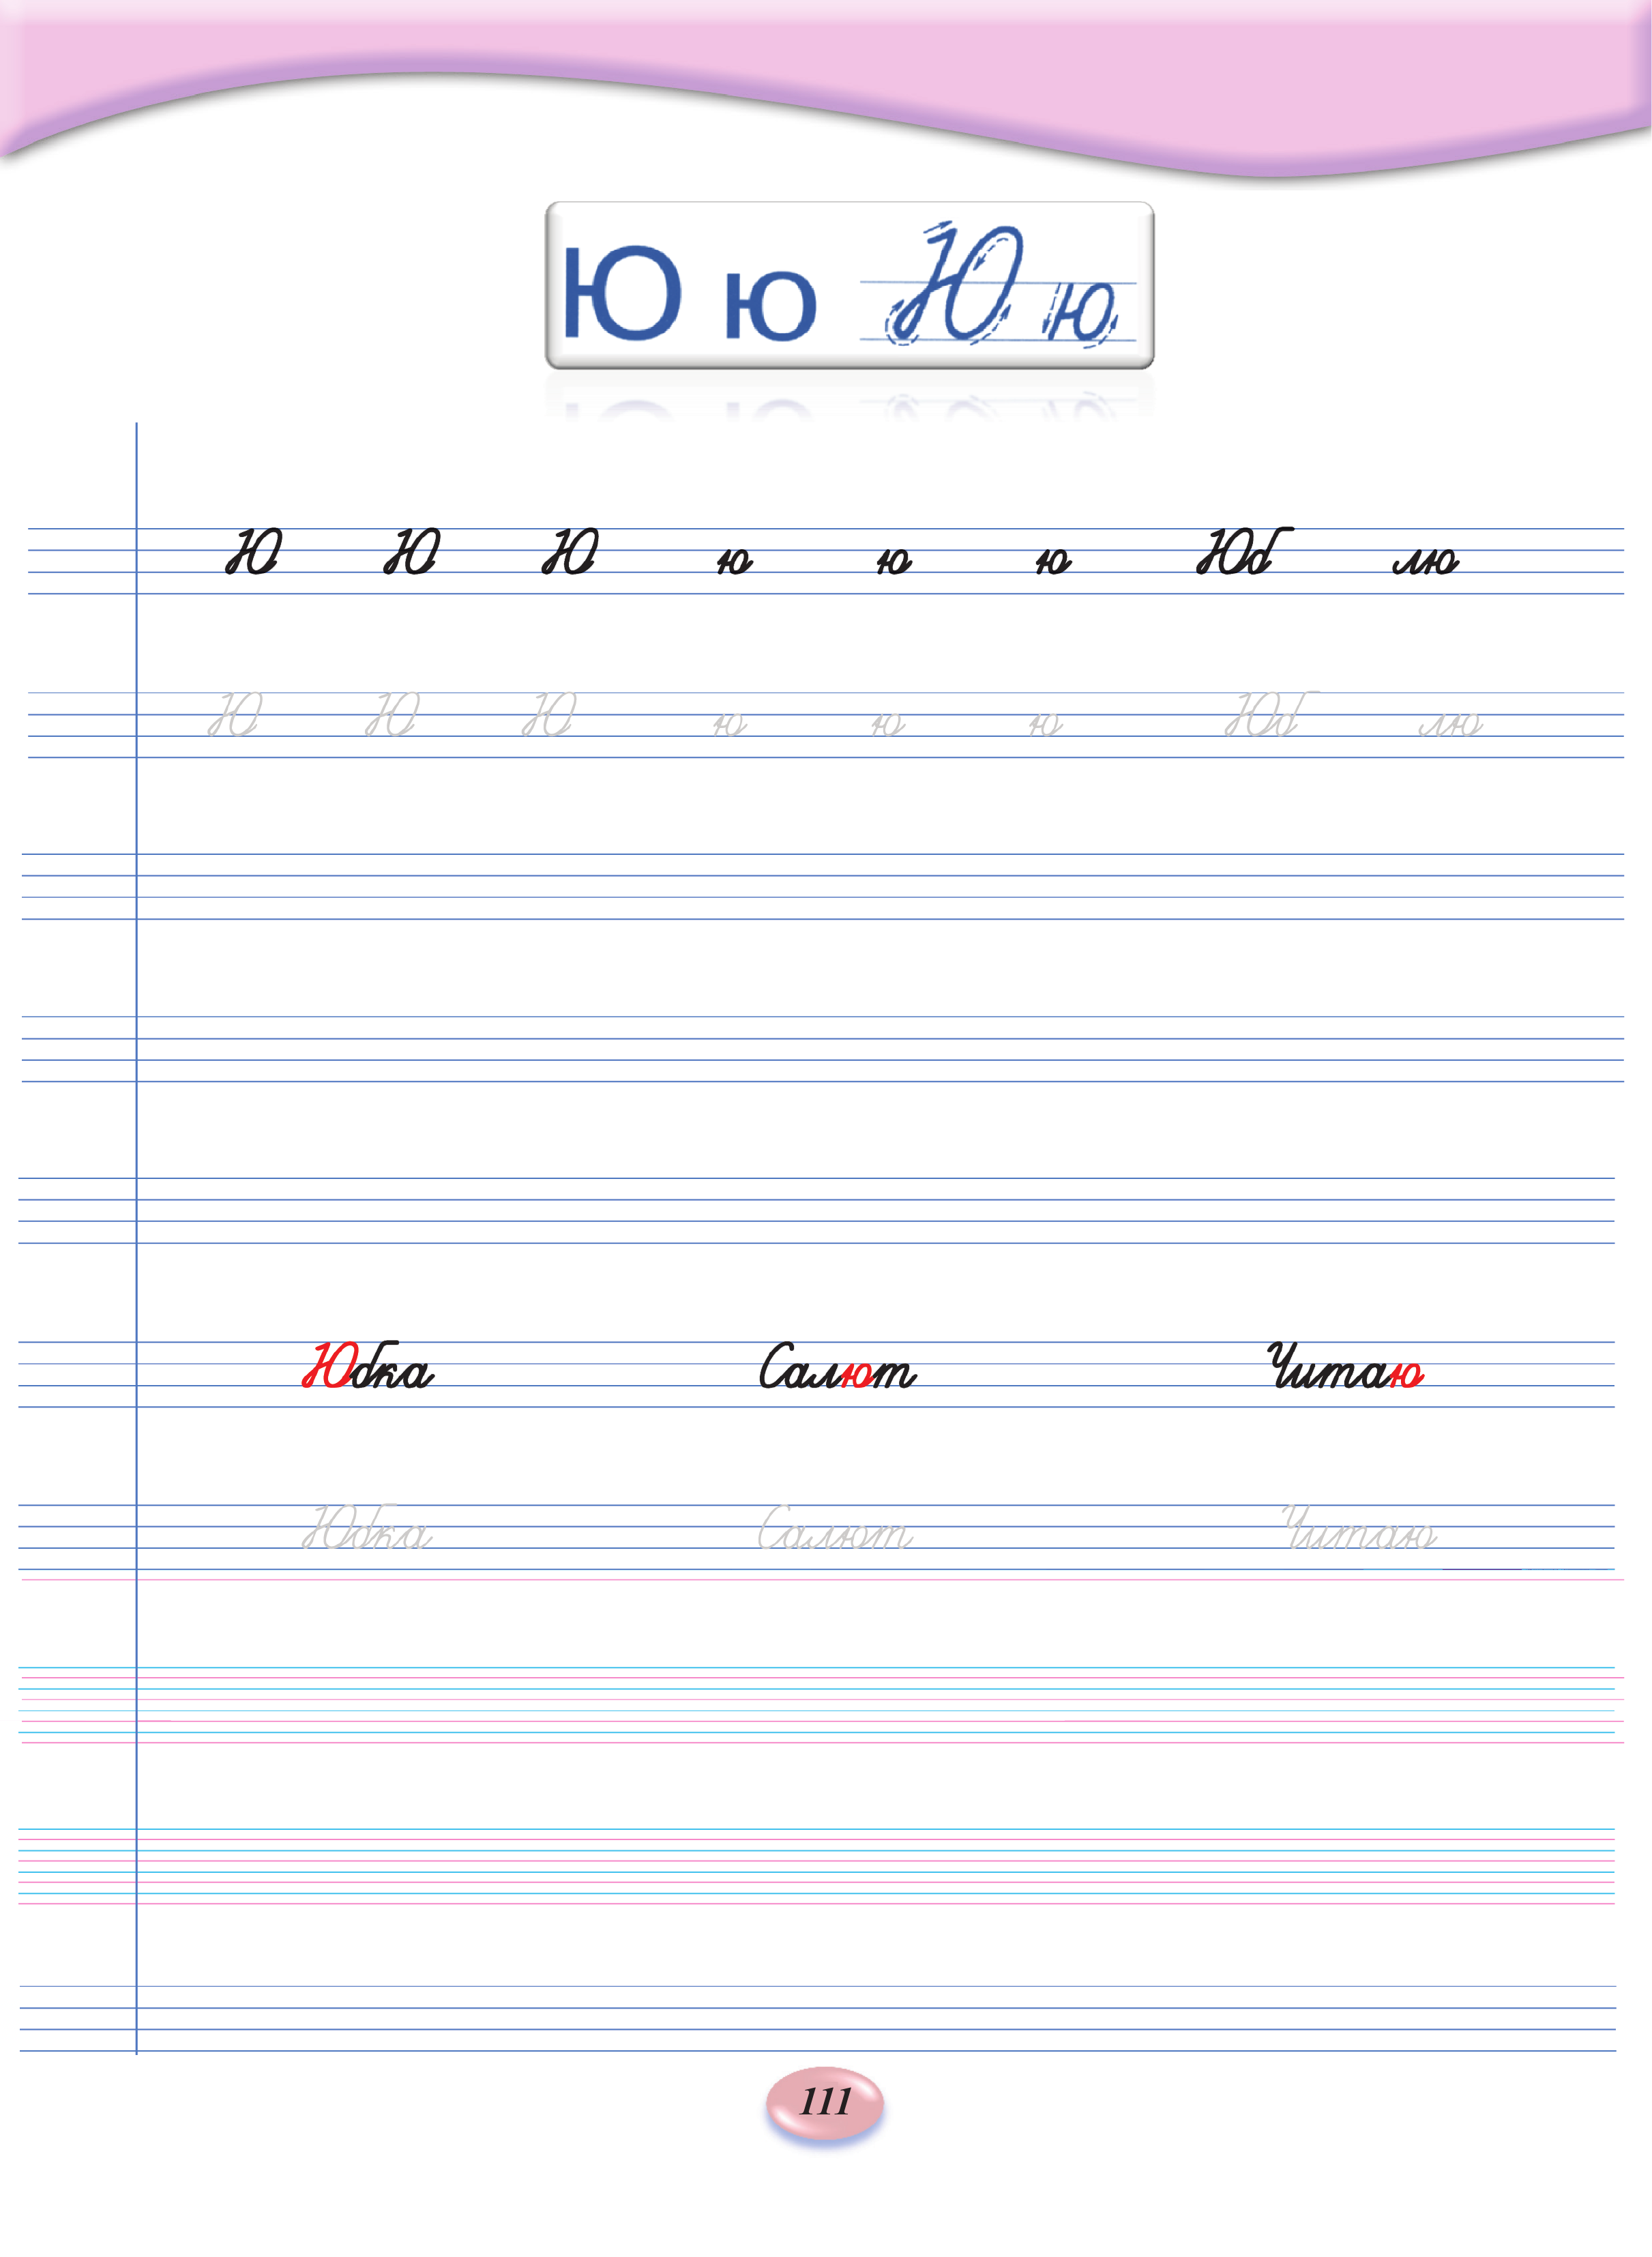 Ю ю Ю ю
Ю Ю Ю ю ю ю Юб лю
Ю Ю Ю ю ю ю Юб лю
Юбка Салют Читаю
Юбка Салют Читаю
111